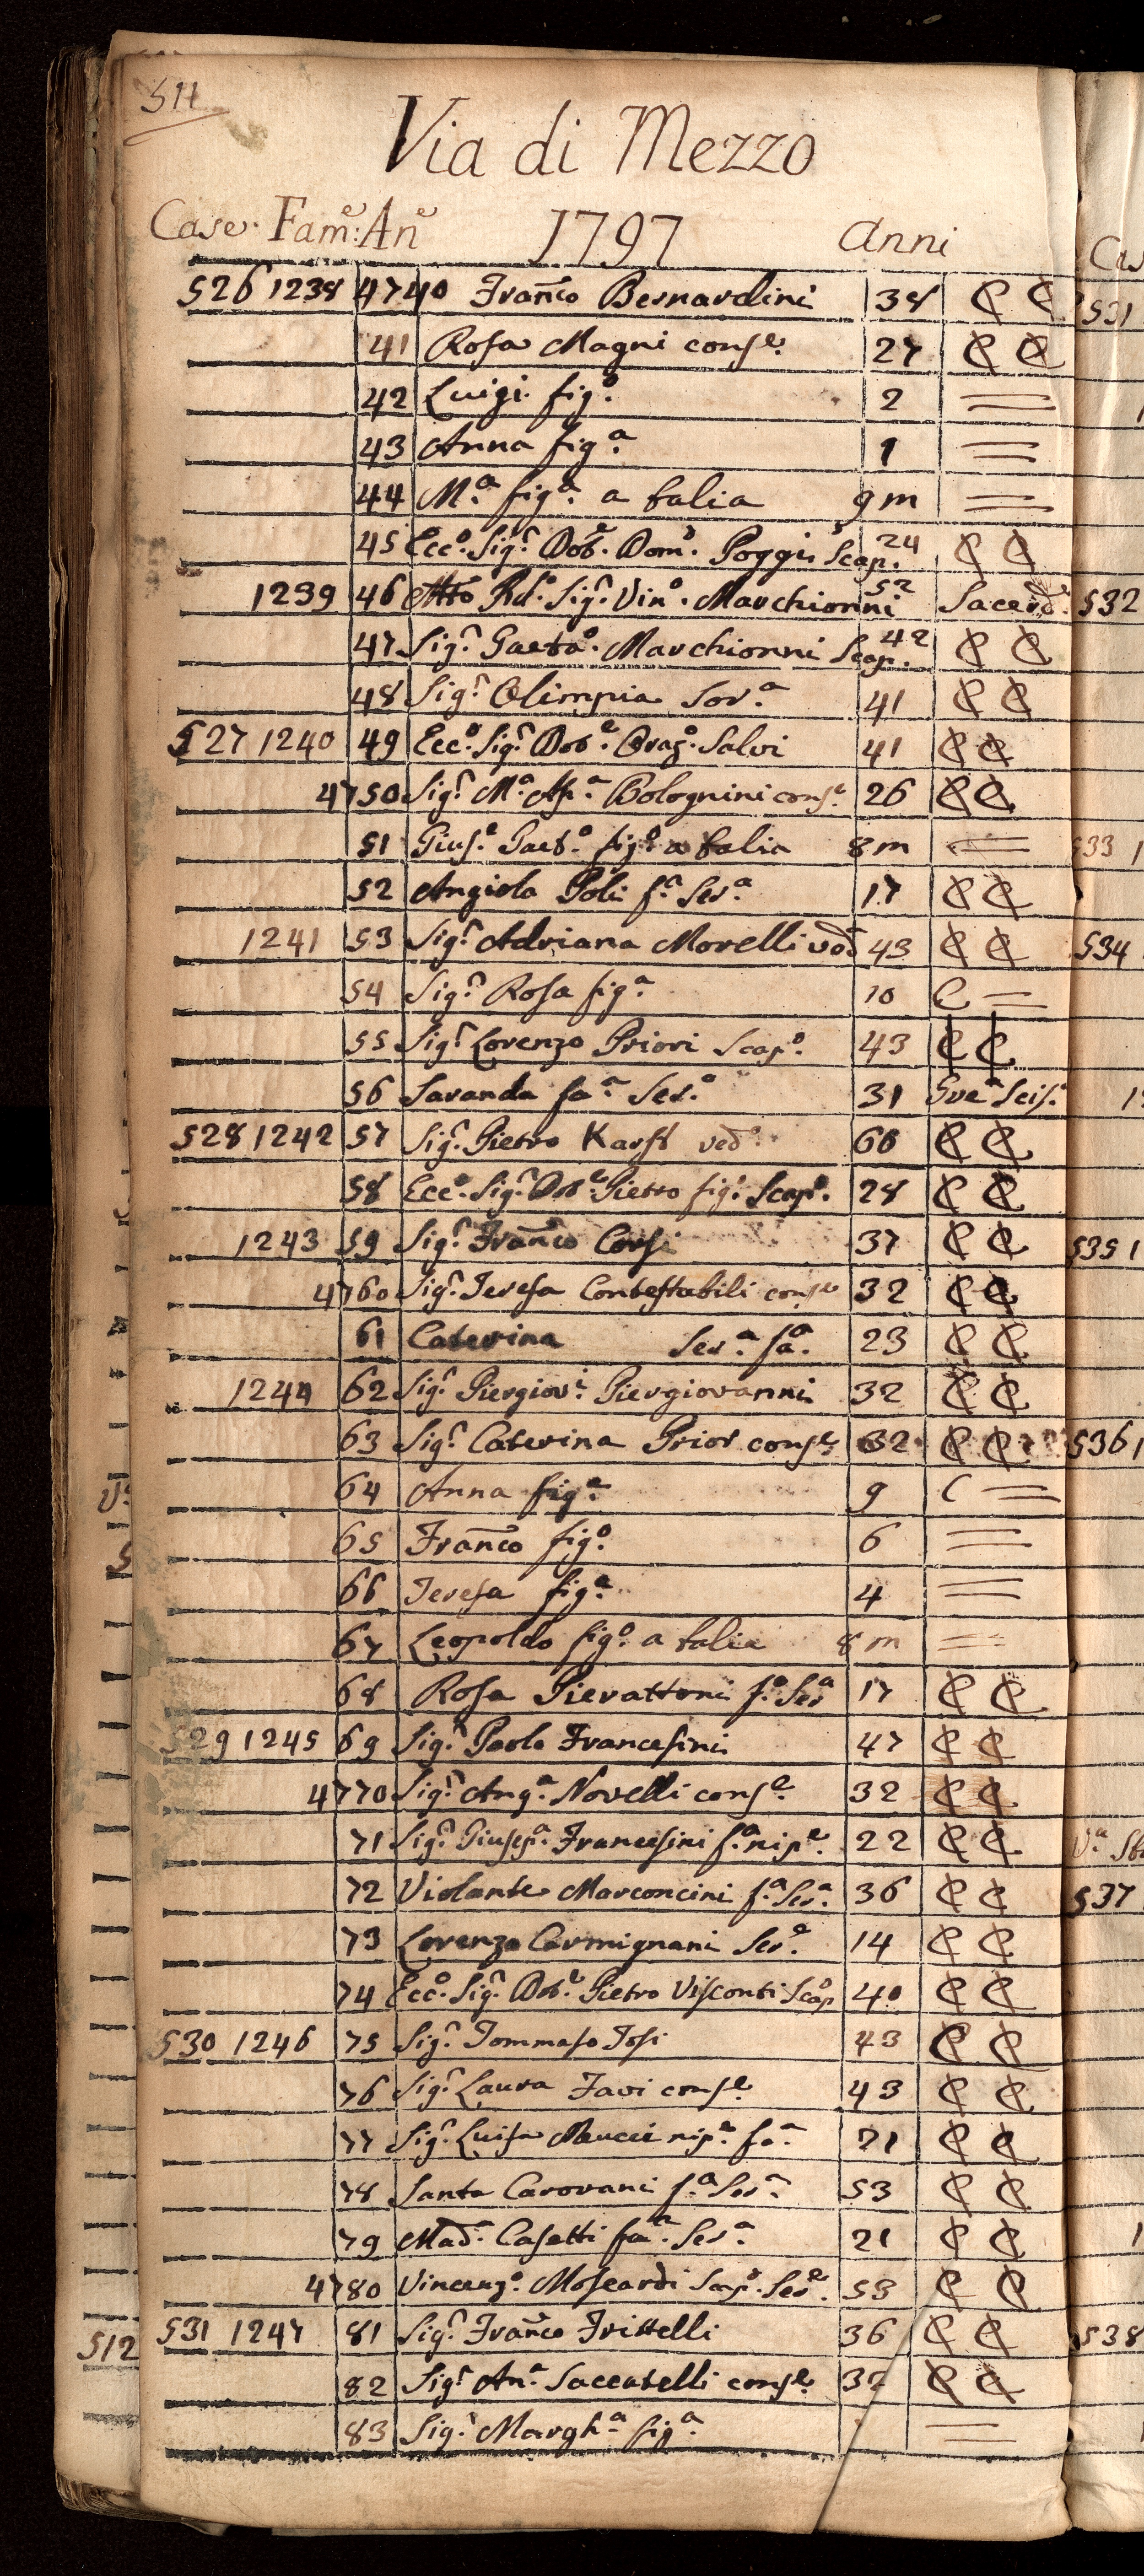 511
Via di Mezzo
Case. Fam.e An.e 1797 Anni
526 1238 4740 Fran.co Bernardini 38 C C
41 Rosa Magni cons.e 27 C C
42 Luigi fig.o 2 =
43 Anna fig.a 1 =
44 M.a fig.a a balia 9 m =
45 Ecc.o Sig.r Dot.e Dom.o Poggi Scap. 24 C C
1239 46 Rd.o Sig.r Vin.o Marchionni 52 Sacerd.
47 Sig.r Gaeta.o Marchionni Scap. 42 C C
48 Sig.r Olimpia Sor.a 41 C C
527 1240 49 Ecc.o Sig.r Dot.e Oraz.o Salvi 41 C C
4750 Sig.r M.a As.a Bolognini cons.e 26 C C
51 Gius.e Gaet.o fig.o a balia 8 m =
52 Angiola Poli f.a Ser.a 17 C C
1241 53 Sig.r Adriana Morelli ved. 43 C C
54 Sig.r Rosa fig.a 10 C =
55 Sig.r Lorenzo Priori Scap.o 43 C C
56 Saranda fa.a Ser. 31
528 1242 57 Sig.r Pietro Karst ved.o 60 C C
58 Ecc.o Sig.r Dot.e Pietro fig.o Scap.o 28 C C
1243 59 Sig.r Fran.co Corsi 37 C C
4760 Sig.r Teresa Contestabili cons.e 32 C C
61 Caterina Ser.a fa.a 23 C C
1244 62 Sig.r Piergiov.i Piergiovanni 32 C C
63 Sig.r Caterina Prior cons.e 32 C C
64 Anna fig.a 9 C =
65 Fran.co fig.o 6 =
66 Teresa fig.a 4 =
67 Leopoldo fig.o a balia 8 m =
68 Rosa Pierattoni f.a Ser.a 17 C C
529 1245 69 Sig.r Paolo Francesini 47 C C
4770 Sig.r Ang.a Novelli cons.e 32 C C
71 Sig.r Giusep.a Francesini f.a nip.e 22 C C
72 Violante Marconcini f.a Ser.a 36 C C
73 Lorenzo Carmignani Ser.e 14 C C
74 Ecc.o Sig.r Dot.e Pietro Visconti Scap.o 40 C C
530 1246 75 Sig.r Tommaso Tosi 43 C C
76 Sig.r Laura Favi cons.e 43 C C
77 Sig.r Luisa Meucci nip.e fa.a 21 C C
78 Santa Carovani f.a Ser.a 53 C C
79 Mad.a Casetti fa.a Ser.a 21 C C
4780 Vincenz.o Moscardi Scap.o Ser.e 53 C C
531 1247 81 Sig.r Fran.co Frittelli 36 C C
82 Sig.r An.a Saccatelli cons.e 32 C C
83 Sig.r Margh.a fig.a =
531
532
533
534
535
536
537
538
512